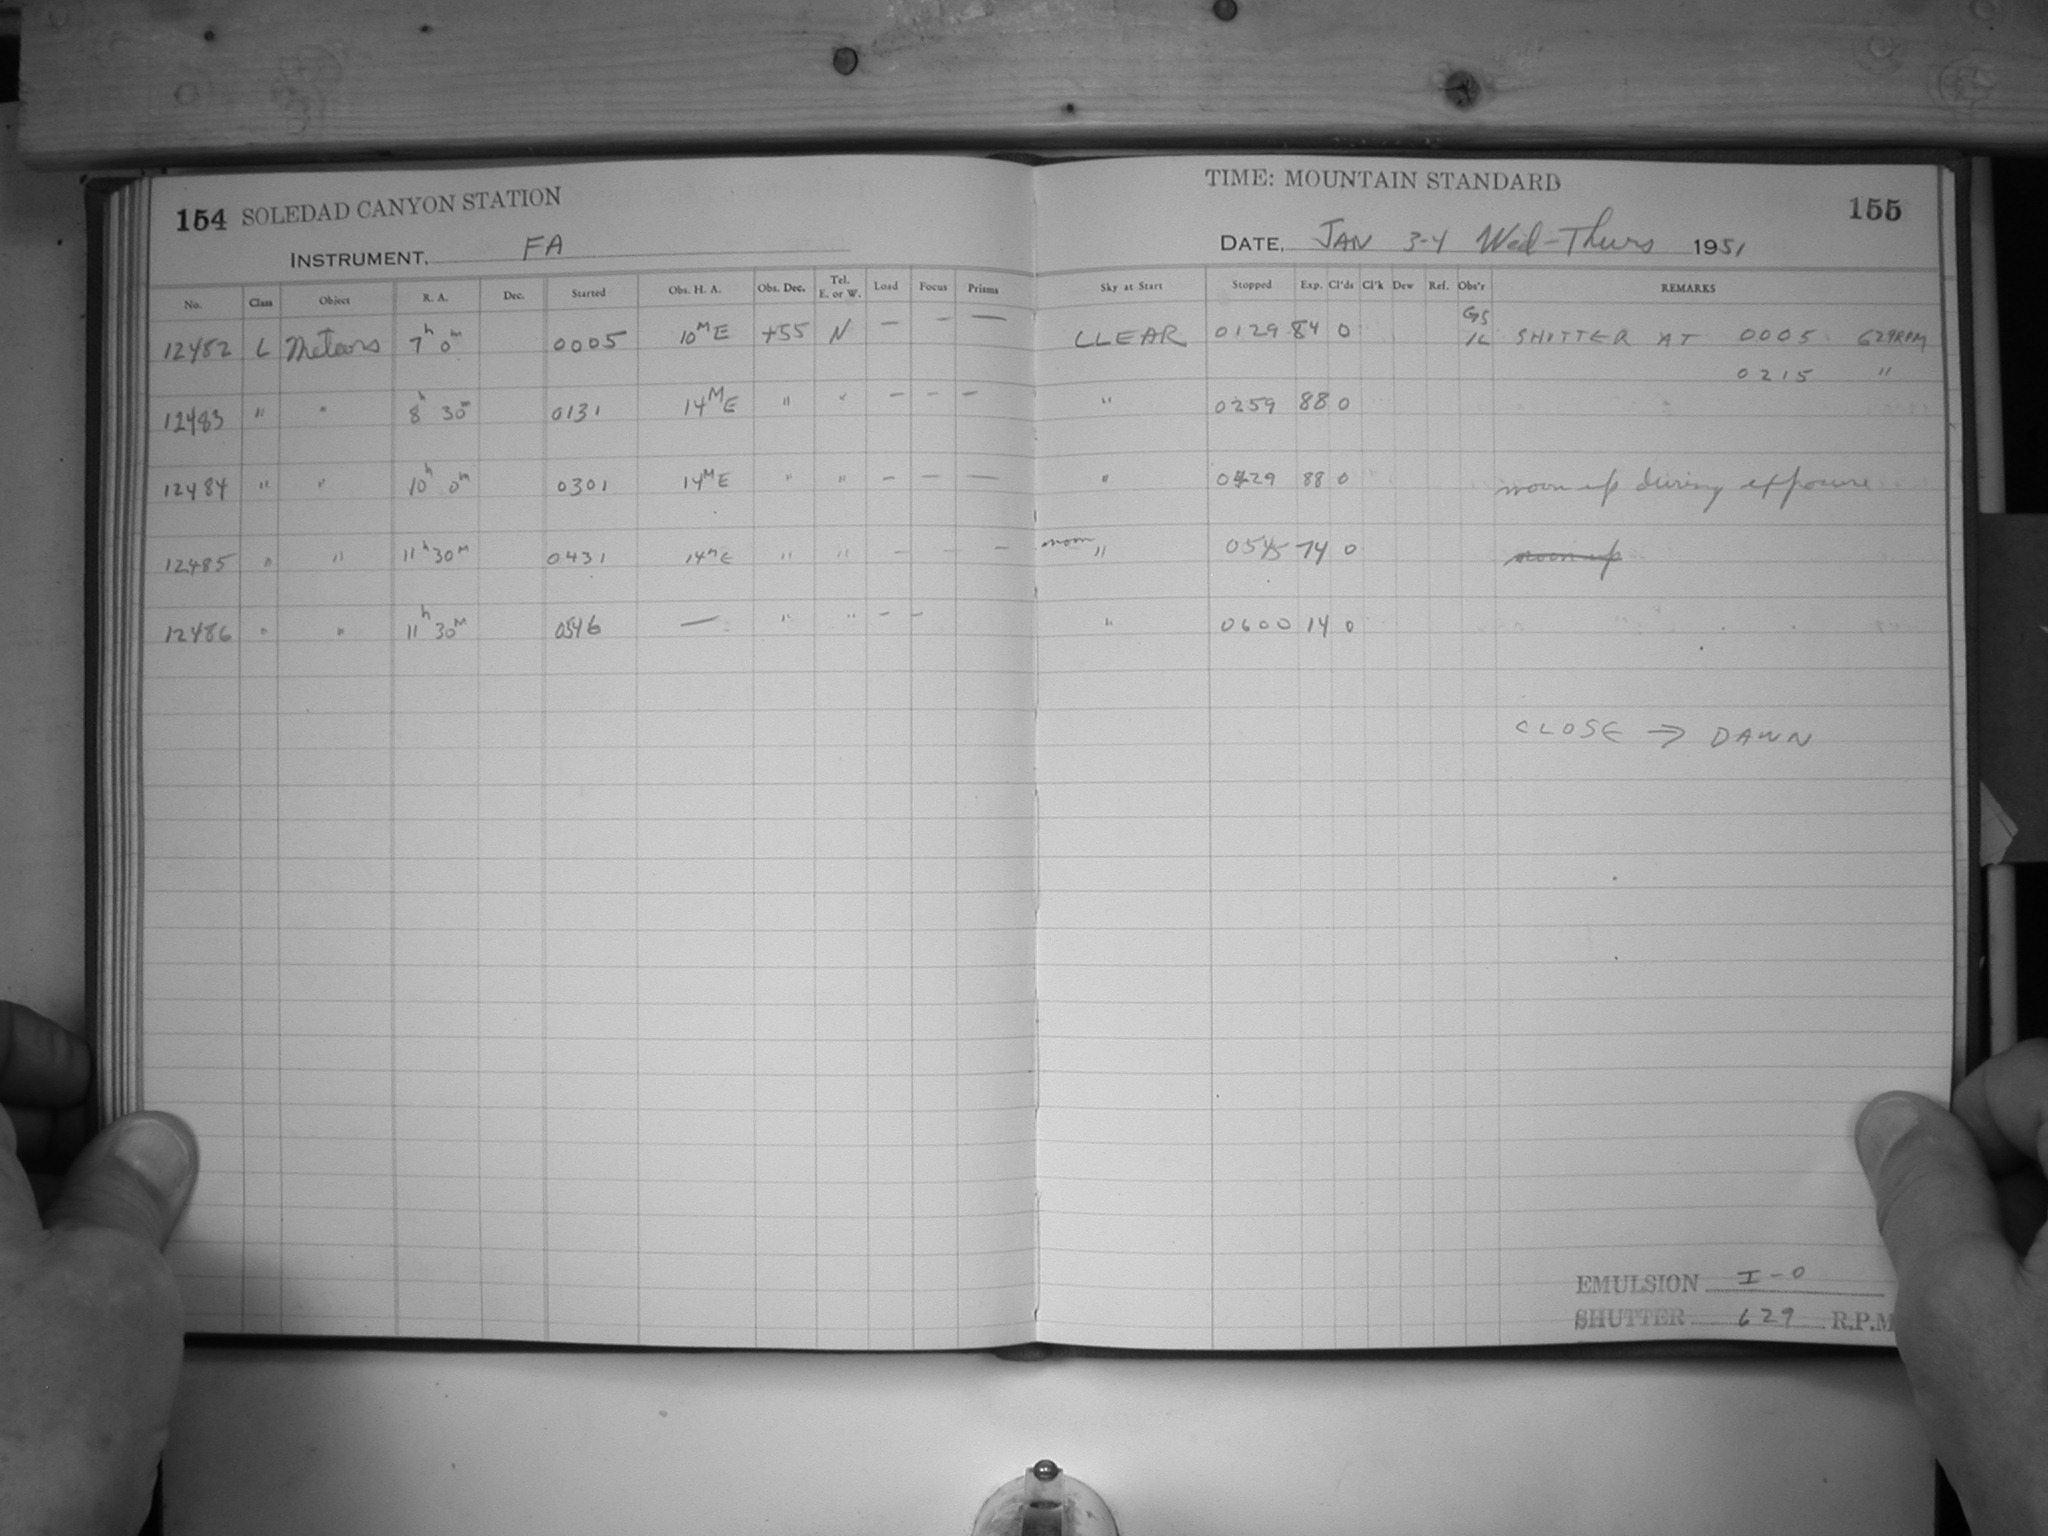 154 SOLEDAD CANYON STATION
INSTRUMENT, FA
TIME: MOUNTAIN STANDARD
155
DATE, JAN 3-4 Wed-Thurs 1951
No. Class Object R. A. Dec. Started Obs. H. A. Obs. Dec. Tel. E. or W. Load Focus Prisms Sky at Start Stopped Exp. Cl'ds Cl'k Dew Ref. Obs'r REMARKS
12482 L Meteors 7h 0m 0005 10M E +55 N — — — CLEAR 0129 84 0 GS SHUTTER AT 0005 629RPM
0215 "
12483 " " 8h 30m 0131 14M E " " — — — " 0259 88 0
12484 " " 10h 0m 0301 14M E " " — — — " 0429 88 0 moon up during exposure
12485 " " 11h 30M 0431 14M E " " — — — moon " 0545 74 0 moon up
12486 " " 11h 30M 0546 — " " — — " 0600 14 0
CLOSE → DAWN
EMULSION I-O
SHUTTER 629 R.P.M